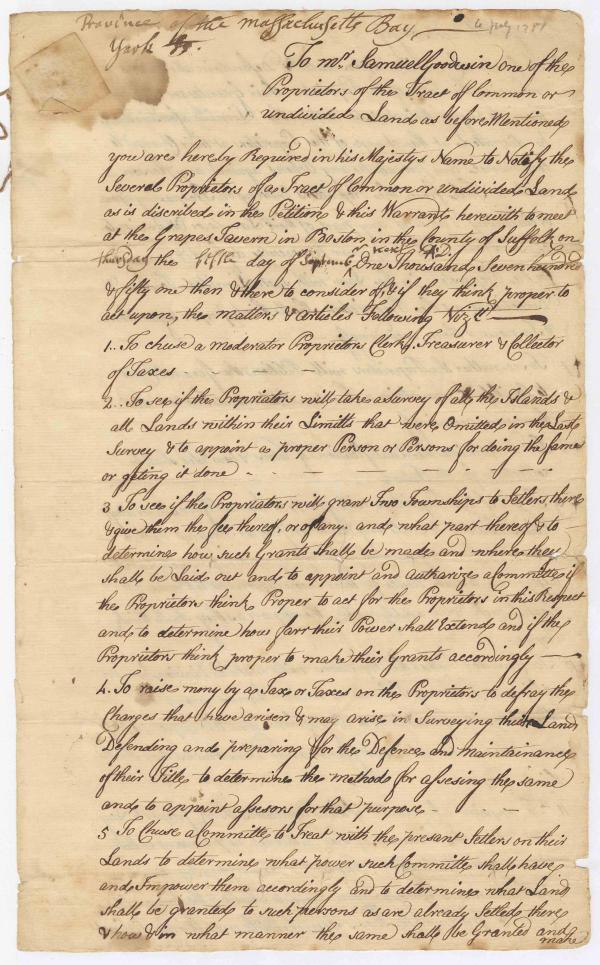 Province of the Massachusetts Bay
York ss.
4 July 1751
To Mr. Samuel Goodwin one of the
Proprietors of the Tract of Common or
undivided Land as before Mentioned
you are hereby Required in his Majestys Name to Notify the
Several Proprietors of a Tract of Common or undivided Land
as is discribed in the Petition & this Warrant herewith to meet
at the Grapes Tavern in Boston in the County of Suffolk on
Thursday the fifth day of Septembr next A:D: One Thousand Seven hundred
& fifty one then & there to consider off & if they think proper to
act upon, the matters & articles Following Vizt.
1.. To chuse a moderator Proprietors Clerk, Treasurer & Collector
of Taxes
2.. To see if the Propriators will take a Survey of all the Islands &
all Lands within their Limitts that were Omitted in the Last
Survey & to appoint a proper Person or Persons for doing the same
or geting it done
3 To see if the Propriators will grant Two Townships to Setlers there
& give them the fee thereof, or of any and what part thereof & to
determine how such Grants shall be made and where they
shall be Laid out and to appoint and autharize a Committe if
the Proprietors think Proper to act for the Proprietors in this Respect
and to determine how farr their Power shall Extend and if the
Proprietors think proper to make their Grants accordingly
4. To raise mony by a Tax or Taxes on the Proprietors to defray the
Charges that have arisen & may arise in Surveying their Land
Defending and preparing for the Defence and maintainance
of their Title to determine the method for assesing the same
and to appoint assesors for that purpose
5 To Chuse a Committe to Treat with the presant Setlers on their
Lands to determine what power such Committe shall have
and Impower them accordingly and to determine what Land
shall be granted to such persons as are already Setled there
& how & in what manner the same shall be Granted and
make